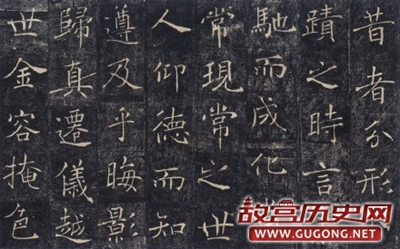 昔者分形
蹟之時言
馳而成化
常現常之世
人仰德而知
遵及乎晦影
歸真遷儀越
世金容掩色
故宫历史网
WWW.GUGONG.NET